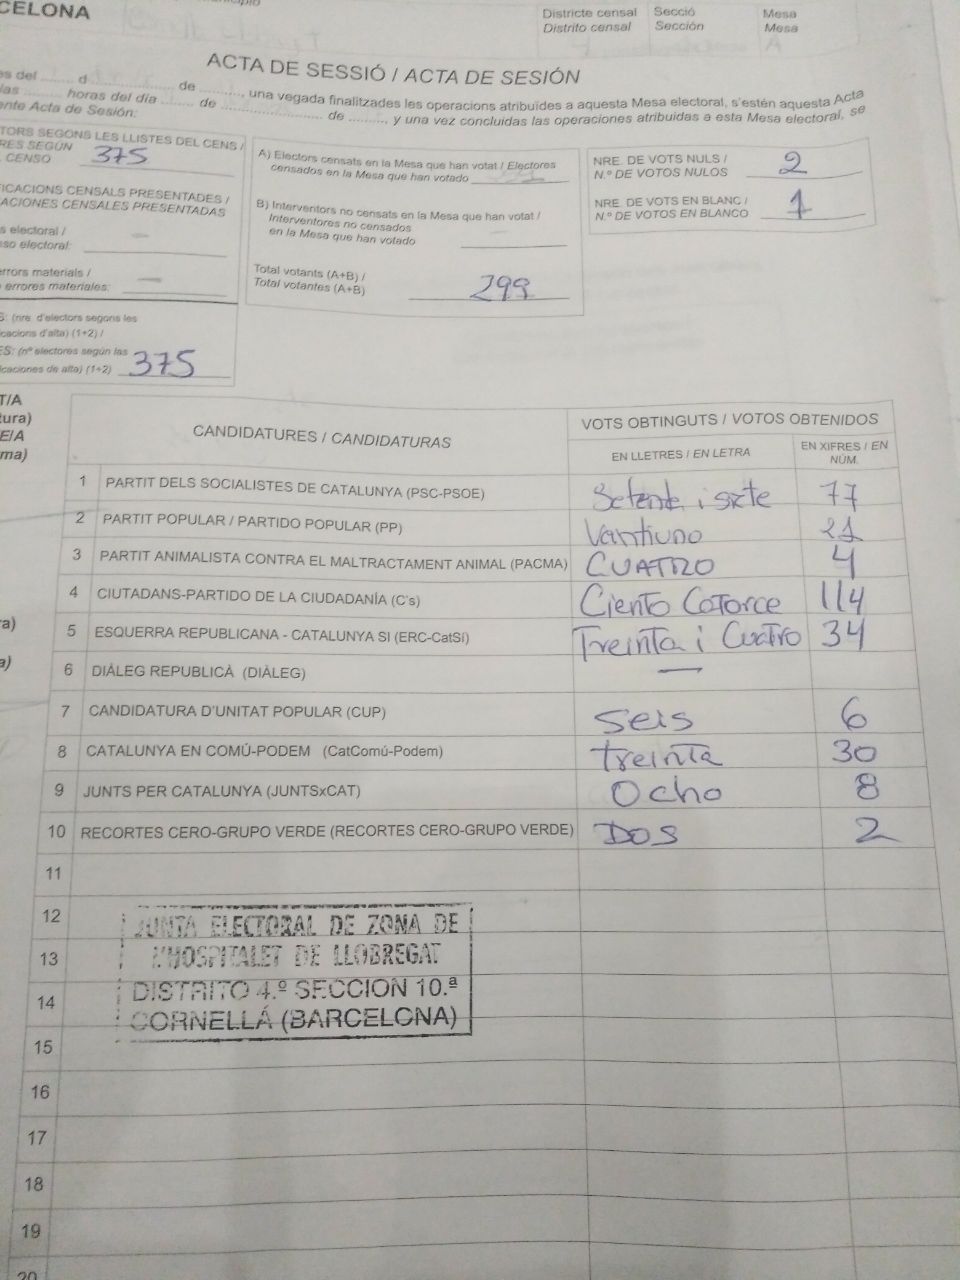 CELONA
Districte censal Secció Mesa
Distrito censal Sección Mesa
A
ACTA DE SESSIÓ / ACTA DE SESIÓN
es del ........ d ........ de ........, una vegada finalitzades les operacions atribuïdes a aquesta Mesa electoral, s'estén aquesta Acta
las ........ horas del día ........ de ........ de ........, y una vez concluidas las operaciones atribuidas a esta Mesa electoral, se
ente Acta de Sesión:
TORS SEGONS LES LLISTES DEL CENS /
RES SEGÚN
CENSO 375
FICACIONS CENSALS PRESENTADES /
ACIONES CENSALES PRESENTADAS
s electoral /
so electoral: —
errors materials /
errores materiales: —
S: (nre. d'electors segons les
icacions d'alta) (1+2) /
ES: (nº electores según las
icaciones de alta) (1+2) 375
A) Electors censats en la Mesa que han votat / Electores
censados en la Mesa que han votado
B) Interventors no censats en la Mesa que han votat /
Interventores no censados
en la Mesa que han votado —
Total votants (A+B) /
Total votantes (A+B) 299
NRE. DE VOTS NULS /
N.º DE VOTOS NULOS 2
NRE. DE VOTS EN BLANC /
N.º DE VOTOS EN BLANCO 1
T/A
tura)
E/A
ma)
CANDIDATURES / CANDIDATURAS
VOTS OBTINGUTS / VOTOS OBTENIDOS
EN LLETRES / EN LETRA
EN XIFRES / EN
NÚM.
1 PARTIT DELS SOCIALISTES DE CATALUNYA (PSC-PSOE) Setenta i siete 77
2 PARTIT POPULAR / PARTIDO POPULAR (PP) Vantiuno 21
3 PARTIT ANIMALISTA CONTRA EL MALTRACTAMENT ANIMAL (PACMA) CUATRO 4
4 CIUTADANS-PARTIDO DE LA CIUDADANÍA (C's) Ciento Catorce 114
5 ESQUERRA REPUBLICANA - CATALUNYA SI (ERC-CatSí) Treinta i Cuatro 34
6 DIÀLEG REPUBLICÀ (DIÀLEG) —
7 CANDIDATURA D'UNITAT POPULAR (CUP) Seis 6
8 CATALUNYA EN COMÚ-PODEM (CatComú-Podem) treinta 30
9 JUNTS PER CATALUNYA (JUNTSxCAT) Ocho 8
10 RECORTES CERO-GRUPO VERDE (RECORTES CERO-GRUPO VERDE) DOS 2
ra)
a)
11
12
13
14
15
16
17
18
19
20
JUNTA ELECTORAL DE ZONA DE
L'HOSPITALET DE LLOBREGAT
DISTRITO 4.º SECCION 10.ª
CORNELLÁ (BARCELONA)